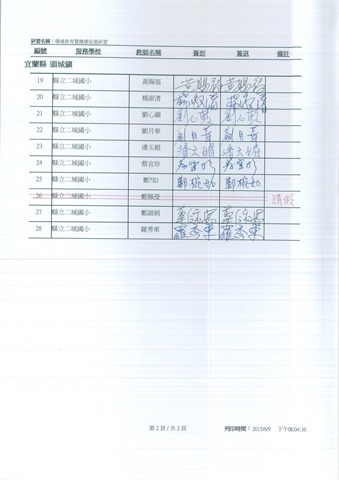 研習名稱：環境教育暨健康促進研習
編號 服務學校 教師名稱 簽到 簽退 備註
宜蘭縣 頭城鎮
19 縣立二城國小 黃賜福 黃賜福 黃賜福
20 縣立二城國小 楊淑清 楊淑清 楊淑清
21 縣立二城國小 劉心蘋
22 縣立二城國小 劉月華 劉月華 劉月華
23 縣立二城國小 潘玉媚 潘玉媚 潘玉媚
24 縣立二城國小 蔡宜珍 蔡宜珍 蔡宜珍
25 縣立二城國小 鄭 如 鄭 如 鄭 如
26 縣立二城國小 鄭佩瑩 請假
27 縣立二城國小 鄭淑明
28 縣立二城國小 羅秀東 羅秀東 羅秀東
第 2 頁 / 共 2 頁 列印時間：2013/6/9 下午08:04:36